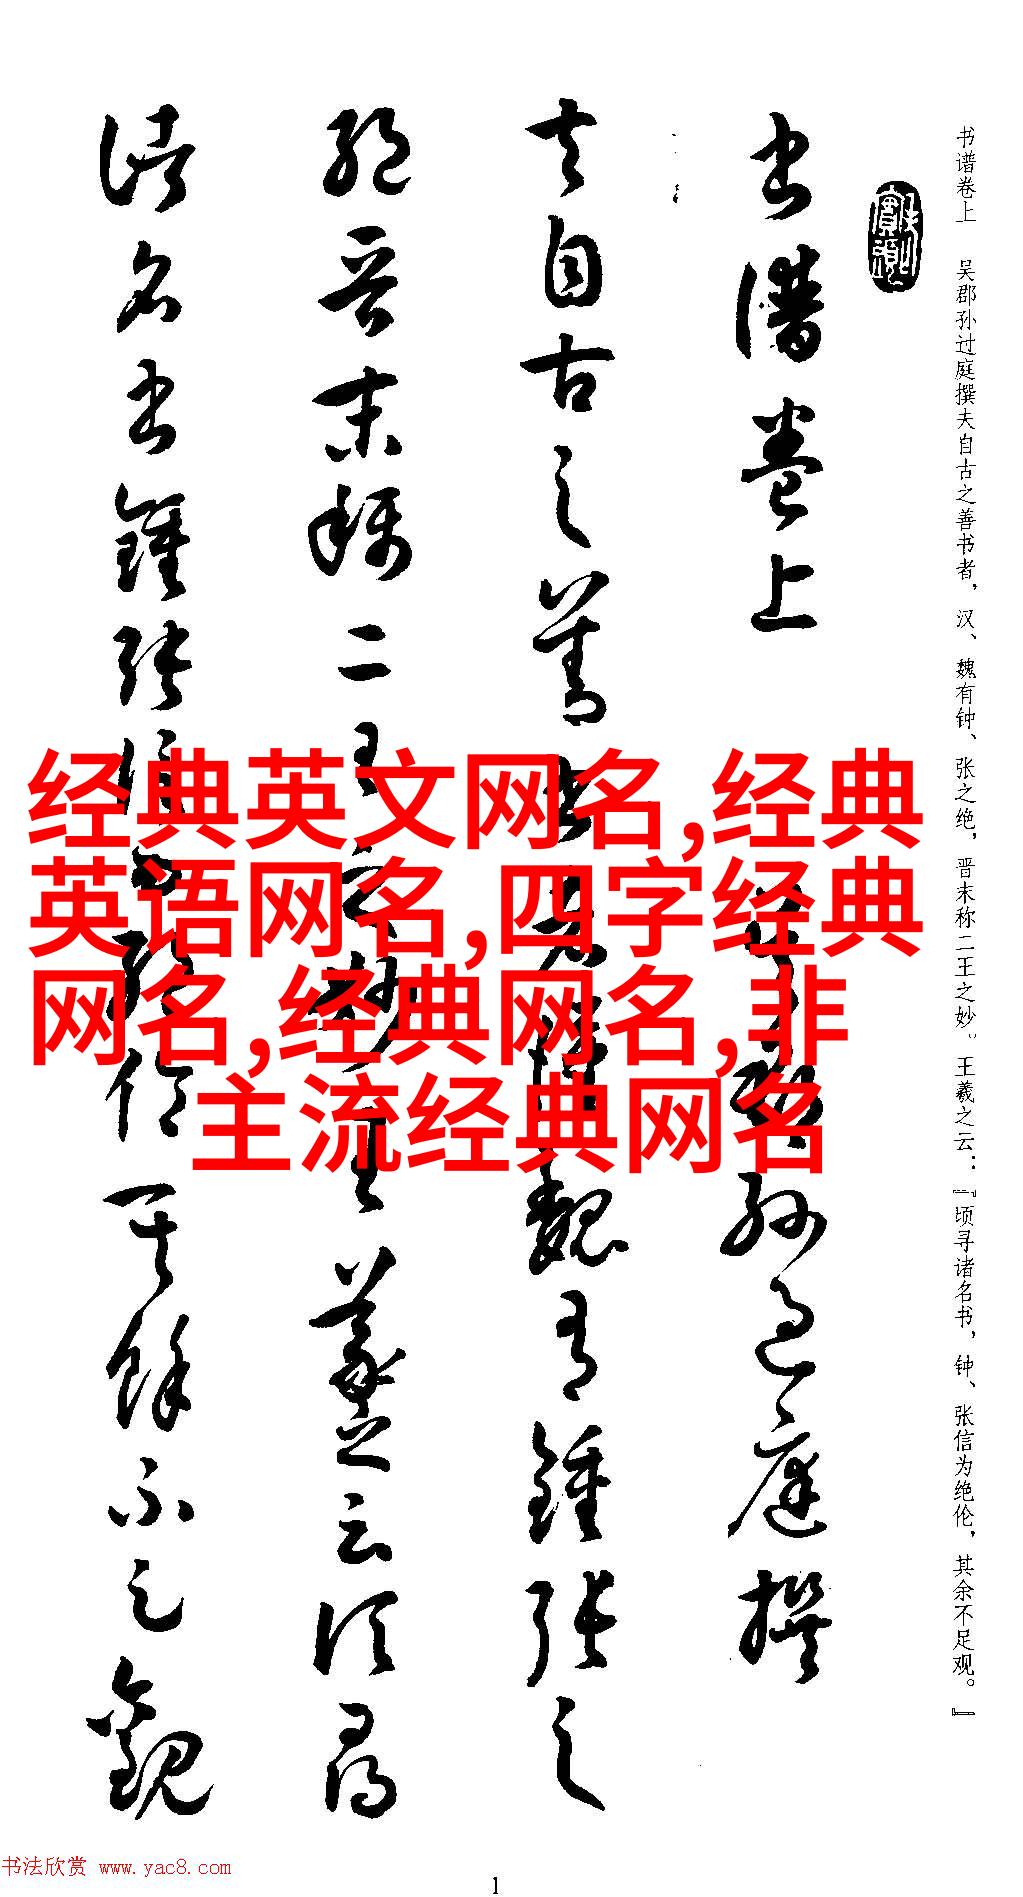 书谱卷上 吴郡孙过庭撰夫自古之善书者，汉、魏有钟、张之绝，晋末称二王之妙。王羲之云：『顷寻诸名书，钟、张信为绝伦，其余不足观。』
書譜卷上 吳郡孫過庭撰
夫自古之善書者漢魏有鍾張之
絕晉末稱二王之妙王羲之云頃尋
諸名書鍾張信為絕倫其餘不足觀
经典英文网名,经典
英语网名,四字经典
网名,经典网名,非
主流经典网名
书法欣赏 www.yac8.com
1